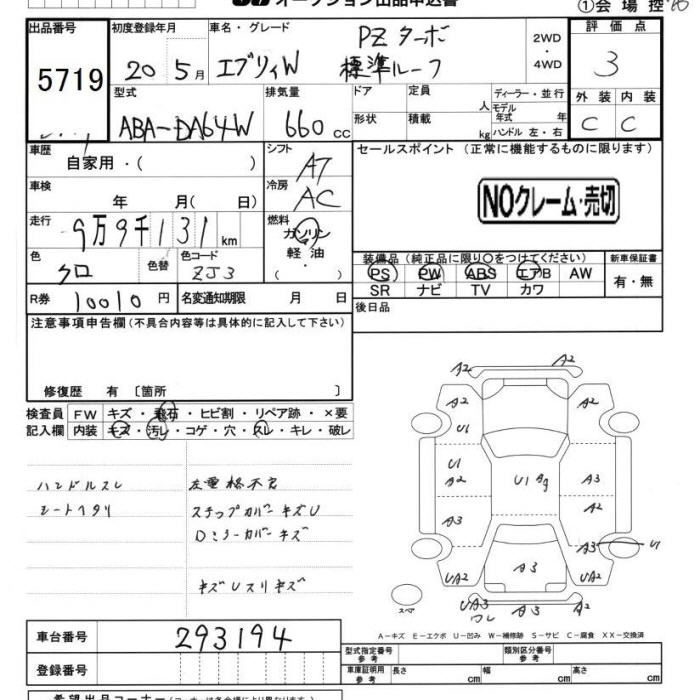 オークション出品申込書
①会場控
出品番号 初度登録年月 車名・グレード 評価点
5719 20 5月 エブリィW PZターボ 標準ルーフ 2WD・4WD 3
型式 排気量 ドア 定員 人 ディーラー・並行 外装 内装
ABA-DA64W 660cc 形状 積載 kg モデル年式 年 ハンドル 左・右 C C
車歴 自家用・( ) シフト AT セールスポイント (正常に機能するものに限ります)
車検 年 月( 日) 冷房 AC NOクレーム・売切
走行 9万9千131km 燃料 ガソリン 軽油 ・( )
色 クロ 色替 色コード ZJ3
装備品(純正品に限り○をつけてください) 新車保証書
PS PW ABS エアB AW 有・無
SR ナビ TV カワ
R券 10010円 名変通知期限 月 日 後日品
注意事項申告欄(不具合内容等は具体的に記入して下さい)
修復歴 有 〔箇所 〕
検査員 FW キズ・飛石・ヒビ割・リペア跡・×要
記入欄 内装 キズ・汚レ・コゲ・穴・スレ・キレ・破レ
ハンドルスレ 左電格不良
シートヘタリ ステップカバーキズU
Dミラーカバーキズ
キズUスリキズ
A2 A2
A2 A2
U1
U1 A2 U1 A3
A3 A2
A3 U1
UA2 A3 UA2
スペ UA3 ワレ A2
A-キズ E-エクボ U-凹み W-補修跡 S-サビ C-腐食 XX-交換済
車台番号 293194
型式指定番号 参考 類別区分番号 参考
登録番号 車庫証明用 参考 長さ cm 幅 cm 高さ cm
希望出品コーナー